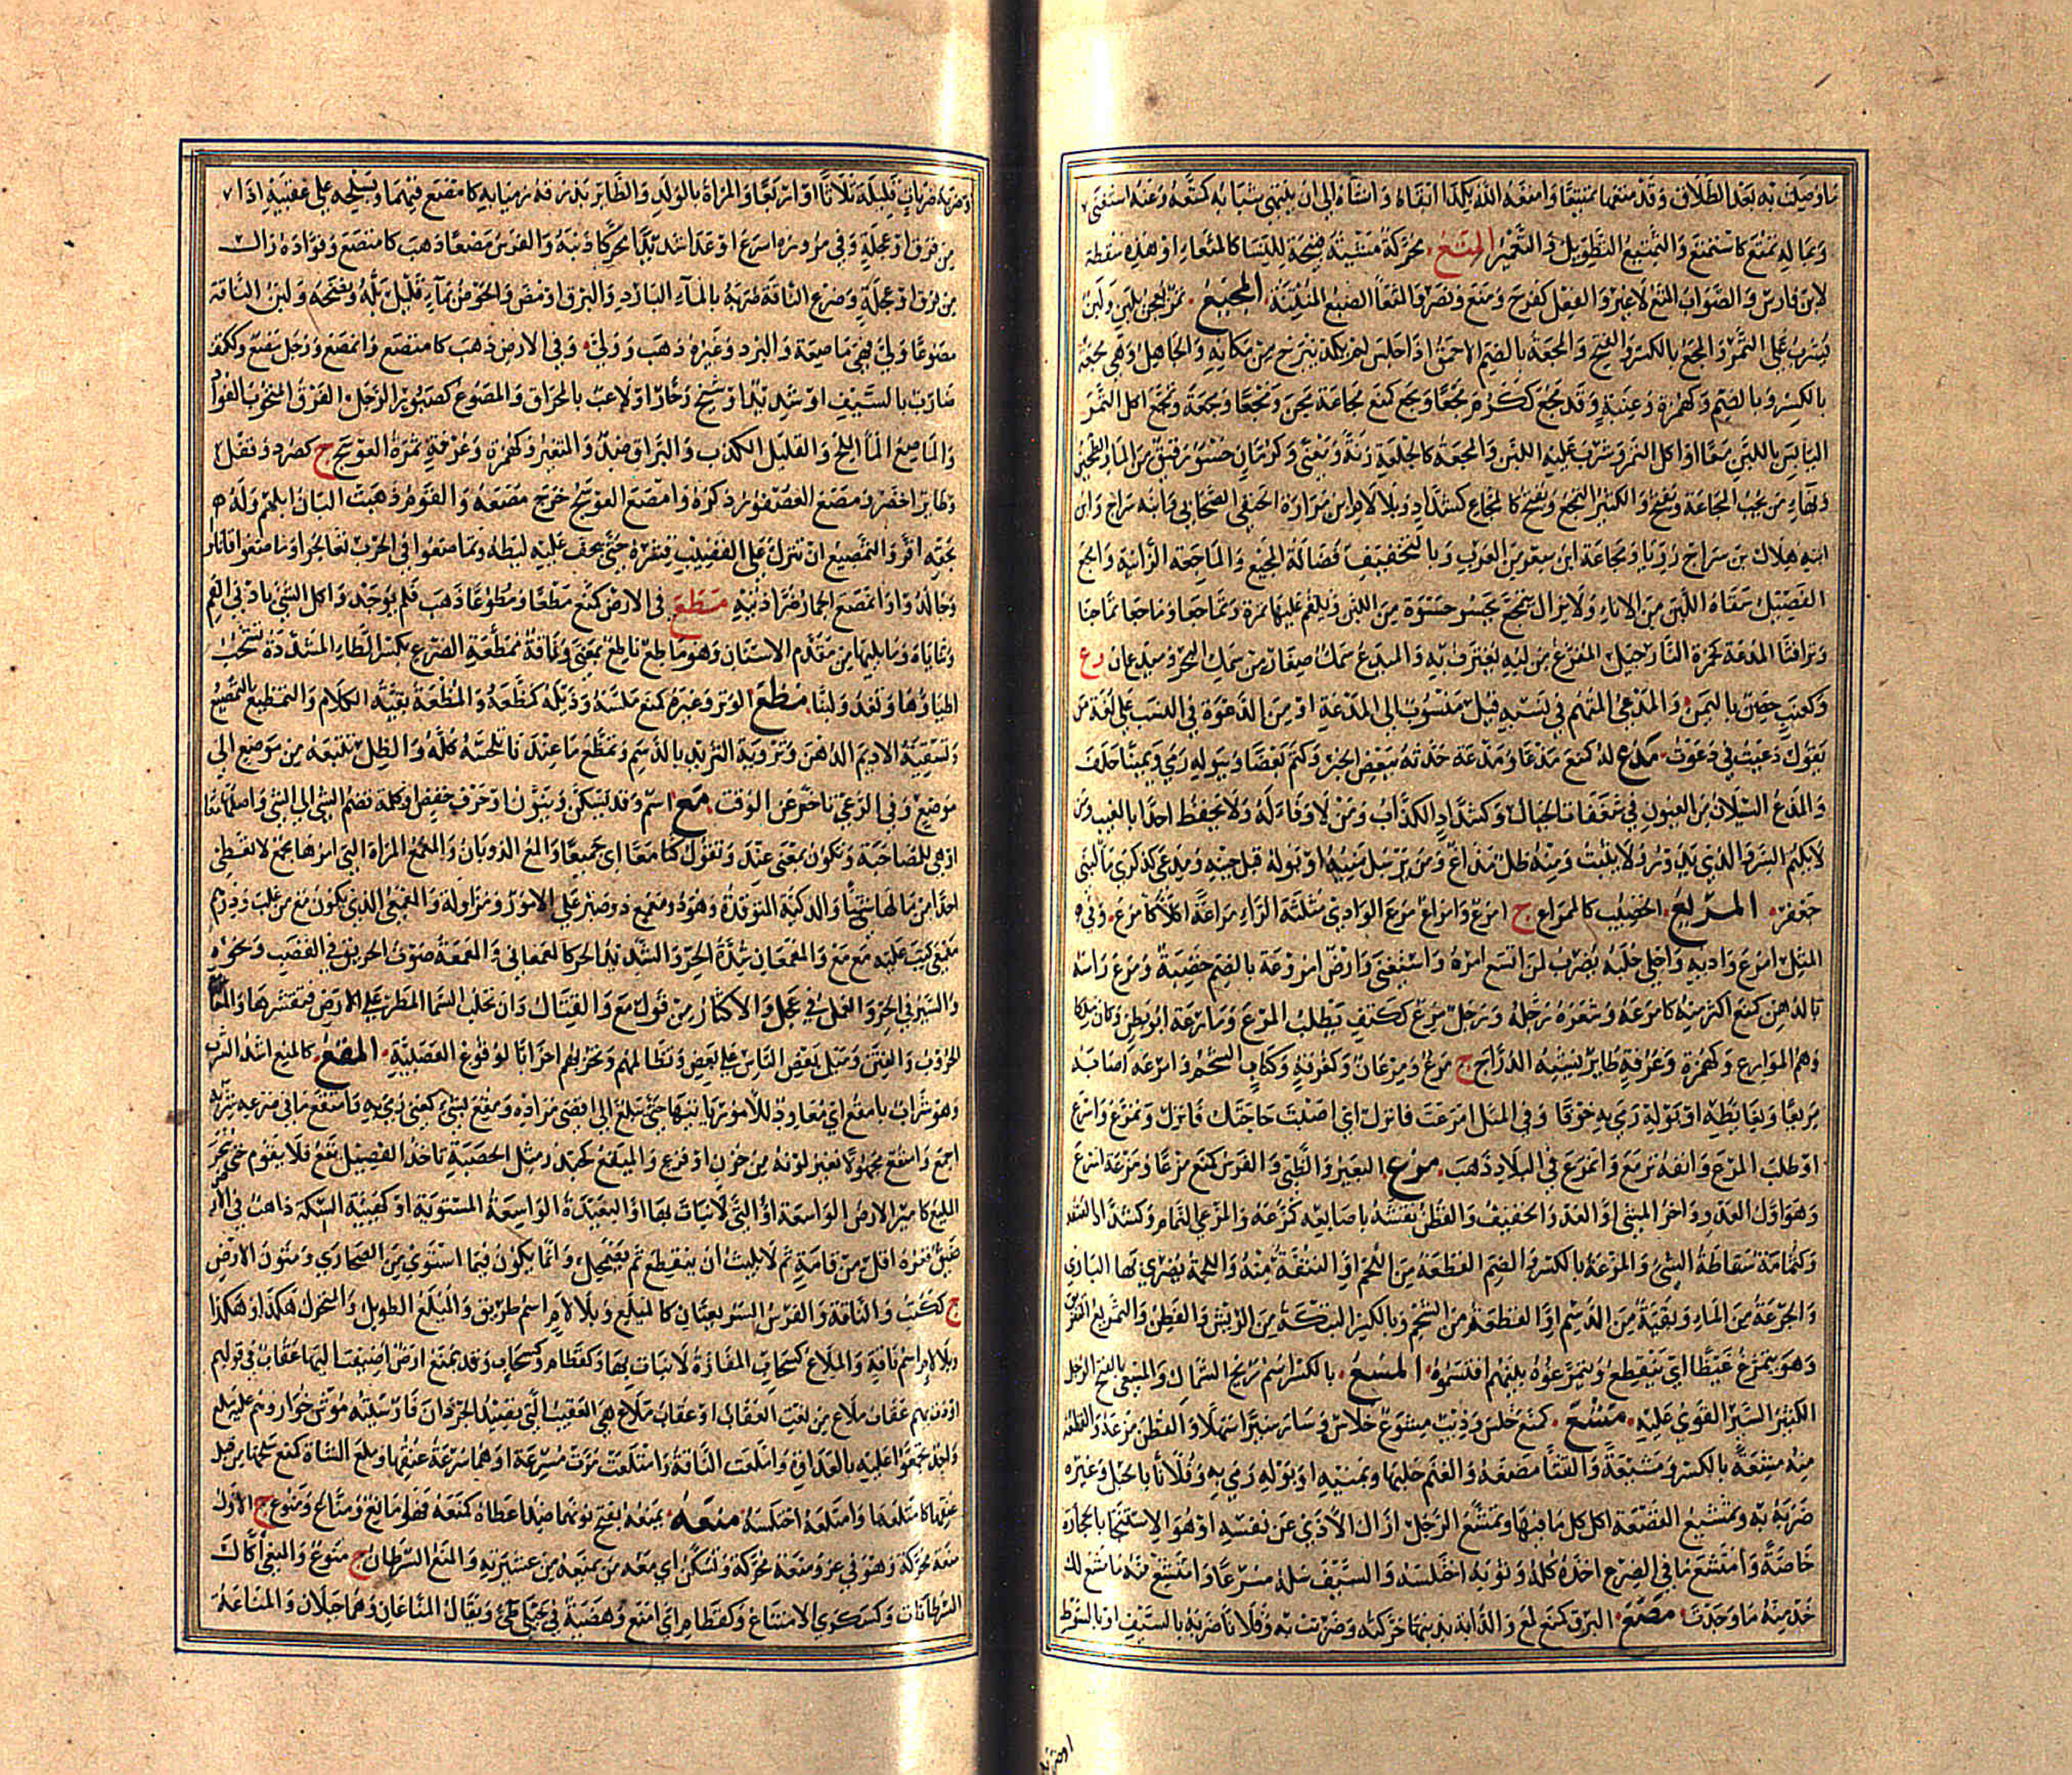 ما وصلت به بعد الطلاق وقد متعها تمتيعا وامتعه الله بكذا ابقاه وانشاه الى ان ينتهي شبابه كمتعه وعنه استغنى
وبماله تمتع كاستمتع والتمتيع التطويل والتعمير المثع محركة مشية قبيحة للنسا كالمثعاء او هذه سقطة
لابن فارس والصواب المثع لا غير والفعل كفرح ومنع ونصر والمثعا الضبع المنتنة المجيع تمر يعجن بلبن ولبن
يشرب على التمر والمجع بالكسر والفتح والمجعة بالضم الاحمق اذا جلس لم يكد يبرح من مكانه والجاهل وهي مجعة
بالكسر وبالضم وكهمزة وعنبة وقد مجع ككرم مجعا ومجع كمنع مجاعة مجن ومجعا ومجعة وتمجع اكل التمر
اليابس باللبن معا او اكل التمر وشرب عليه اللبن والمجعة كالجلعة زنة ومعنى وكرمان حسو رقيق من الماء والطحين
وبهاء من يحب المجاعة ويفتح والكثير التمجع ويفتح كالمجاع كشداد وبلا لام ابن مرارة الحنفي الصحابي وابنه سراج وابن
ابنه هلال بن سراج رويا ومجاعة ابن سعر من العرب وبالتخفيف فضالة المجيع والماجعة الزانية وامجع
الفصيل سقاه اللبن من الاناء ولا يزال يتمجع يحسو حسوة من اللبن ويلقم عليها تمرة وتماجعا وماجعا تماجنا
وترافثا المدعة كحمزة النارجيل المفرغ من لبه يغترف به والمبدع سمك صغار من سمك البحر وميدعان ع
وكعنب حصن باليمن والمدعى المتهم في نسبه قيل منسوب الى المدعة او من الدعوة في النسب على لغة من
يقول دعيت في دعوت مذع له كمنع مذعا ومذعة حدثه ببعض الخبر وكتم بعضا وببوله رمى ويمينا حلف
والمذع السيلان من العيون في شعفات الجبال وكشداد الكذاب ومن لا وفاء له ولا يحفظ احدا بالغيب ومن
لا يكتم السر والذي يدور ولا يثبت ومنه ظل مذاع ومن يرسل منيه او بوله قبل حينه ومذعى كذكرى ماء لبني
جعفر المريع الخصيب كالممراع ج امرع وامراع مرع الوادي مثلثة الراء مراعة اكلا كامرع وفي
المثل امرع واديه واجنى حلبه يضرب لمن اتسع امره واستغنى وارض امروعة بالضم خصيبة ومرع راسه
بالدهن كمنع اكثر منه كامرعه وشعره رجله ورجل مرع ككتف يطلب المرع ومارعة ابو بطن وكان ملكا
وهم الموارع وكهمزة وغرفة طاير يشبه الدراج ج مرع ومرعان وكغرفة وكتاب الشحم وامرعه اصابه
مريعا وبغايطه او بوله رمى به خوفا وفي المثل امرعت فانزل اي اصبت حاجتك فانزل وتمرع واسرع
او طلب المرع وانفه ترمع وانمرع في البلاد ذهب مزع البعير والظبي والفرس كمنع مزعا ومزعة اسرع
وهو اول العدو واخر المشي او العدو الخفيف والقطن نفشه باصابعه كمزعه والمزعي النمام وكشداد القنفذ
وكثمامة سقاطة الشي والمزعة بالكسر والضم القطعة من اللحم او النتفة منه واللحمة يضرى بها البازي
والجرعة من الماء وبقية من الدسم او القطعة من الشحم وبالكسر البتكة من الريش والقطن والتمزيع التفريق
وهو يتمزع غيظا اي يتقطع وتمزعوه بينهم اقتسموه المسع بالكسر اسم ريح الشمال والمسعي بالفتح الرجل
الكثير السير القوي عليه مشع كمنع خلس وذئب مشوع خلاس وسار سيرا سهلا والقطن مزعه والقطعة
منه مشعة بالكسر ومشيعة والقثا مضغه والغنم حلبها وبمنيه او بوله رمى به وفلانا بالحبل وغيره
ضربه به وتمشيع القصعة اكل كل ما فيها وتمشع الرجل ازال الاذى عن نفسه او هو الاستنجا بالحجارة
خاصة وامتشع ما في الضرع اخذه كله وثوبه اختلسه والسيف سله مسرعا وامتشع منه ما مشع لك
خذ منه ما وجدت مصع البرق كمنع لمع والدابة بذنبها حركته وضربت به وفلانا ضربه بالسيف او بالسوط
او ضربه
او ضربه ضربات قليلة ثلاثا او اربعا والمراة بالولد والطاير بذرقه رميا به كامصع فيهما وبسلحه على عقبيه اذا
من فرق او عجلة وفي مروره اسرع او عدا شديدا محركا ذنبه والفرس مصعا ذهب كامتصع وفواده زال
من فرق او عجلة وضرع الناقة ضربه بالماء البارد والبرق اومض والحوض بماء قليل بله ونضحه ولبن الناقة
مصوعا ولى فهي ماصعة والبرد وغيره ذهب وولى وفي الارض ذهب كامتصع وانمصع ورجل مصع وككتف
ضارب بالسيف او شديد او شيخ زحار او لاعب بالمخراق والمصوع كصبور الرجل الفرق المنخوب الفواد
والماصع الماء الملح والقليل الكدر والبراق ضد والمتغير وكهمزة وغرفة ثمرة العوسج ج كصرد وقفل
وطاير اخضر ومصع العصفور ذكره وامصع العوسج خرج مصعه والقوم ذهبت البان ابلهم وله
بحقه اقر والتمصيع ان تترك على القضيب قشره حتى يجف عليه ليطه وتماصعوا في الحرب تعالجوا وماصعوا قاتلوا
وجالدوا وانمصع الحمار صر اذنيه مطع في الارض كمنع مطعا ومطوعا ذهب فلم يوجد واكل الشي بادنى الفم
وثناياه وما يليها من مقدم الاسنان وهو ماطع ناطع بمعنى وناقة ممطعة الضرع بكسر الطاء المشددة تشخب
اطباوها وتغذو لبنا مظع الوتر وغيره كمنع ملسه وذبله كمظعه والمظعة بقية الكلام والتمظيع التمصيع
وتسقية الاديم الدهن وتروية الثريد بالدسم وتمظع ما عنده تلحسه كله والظل تتبعه من موضع الى
موضع وفي الرعي تاخر عن الوقت مع اسم وقد يسكن وينون او حرف خفض او كلمة تضم الشي الى الشي واصلها معا
او هي للمصاحبة وتكون بمعنى عند وتقول كنا معا اي جميعا والمع الذوبان والمعمع المراة التي امرها مجمع لا تعطي
احدا من مالها شيئا والذكية المتوقدة وهو ذو معمع ذو صبر على الامور ومزاولة والمعمعي الذي يكون مع من غلب ودرهم
معمعي كتب عليه مع مع والمعمعان شدة الحر والشديد الحر كالمعمعاني والمعمعة صوت الحريق في القصب ونحوه
والسير في الحر والعمل في عجل والاكثار من قول مع والقتال وان تحلب السما المطر على الارض فتقشرها والمعامع
الحروب والفتن وميل بعض الناس على بعض وتظالمهم وتحزبهم احزابا لوقوع العصبية المقع كالمنع اشد الشرب
وهو شراب بامقع اي معاود للامور ياتيها حتى يبلغ الى اقصى مراده ومقع بشي كعني رمي به وامتقع ما في ضرع امه شربه
اجمع وامتقع مجهولا تغير لونه من حزن او فزع والميقع كحيدر مثل الحصبة ياخذ الفصيل يقع فلا يقوم حتى ينحر
المليع كامير الارض الواسعة او التي لا نبات بها او البعيدة الواسعة المستوية او كهيئة السكة ذاهب في الارض
ضيق قعره اقل من قامة ثم لا يلبث ان ينقطع ثم يضمحل وانما يكون فيما استوى من الصحاري ومتون الارض
ج ككتب والناقة والفرس السريعتان كالميلع وبلا لام اسم طريق والميلع الطويل والمتحرك هكذا وهكذا
وبلا لام اسم ناقة والملاع كسحاب المفازة لا نبات بها وكقطام وكسحاب وقد يمنع ارض اضيفت اليها عقاب في قولهم
اودت بهم عقاب ملاع من نعت العقاب او عقاب ملاع هي العقيب التي تصيد الجرذان فارسيته موش خوار وهم عليه ملع
واحد تجمعوا عليه بالعداوة واملعت الناقة وامتلعت مرت مسرعة او هما سرعة عنقها وملع الشاة كمنع سلخها من قبل
عنقها كامتلعها وامتلعه اختلسه منعه يمنعه بفتح نونهما ضد اعطاه كمنعه فهو مانع ومناع ومنوع ج الاول
منعة محركة وهو في عز ومنعة محركة وتسكن اي معه من يمنعه من عشيرته والمنع السرطان ج منوع والمنعي اكال
السرطانات وكسكرى الامتناع وكقطام اي امنع وهضبة في جبلي طيئ ويقال المناعان وهما جبلان والمناعة